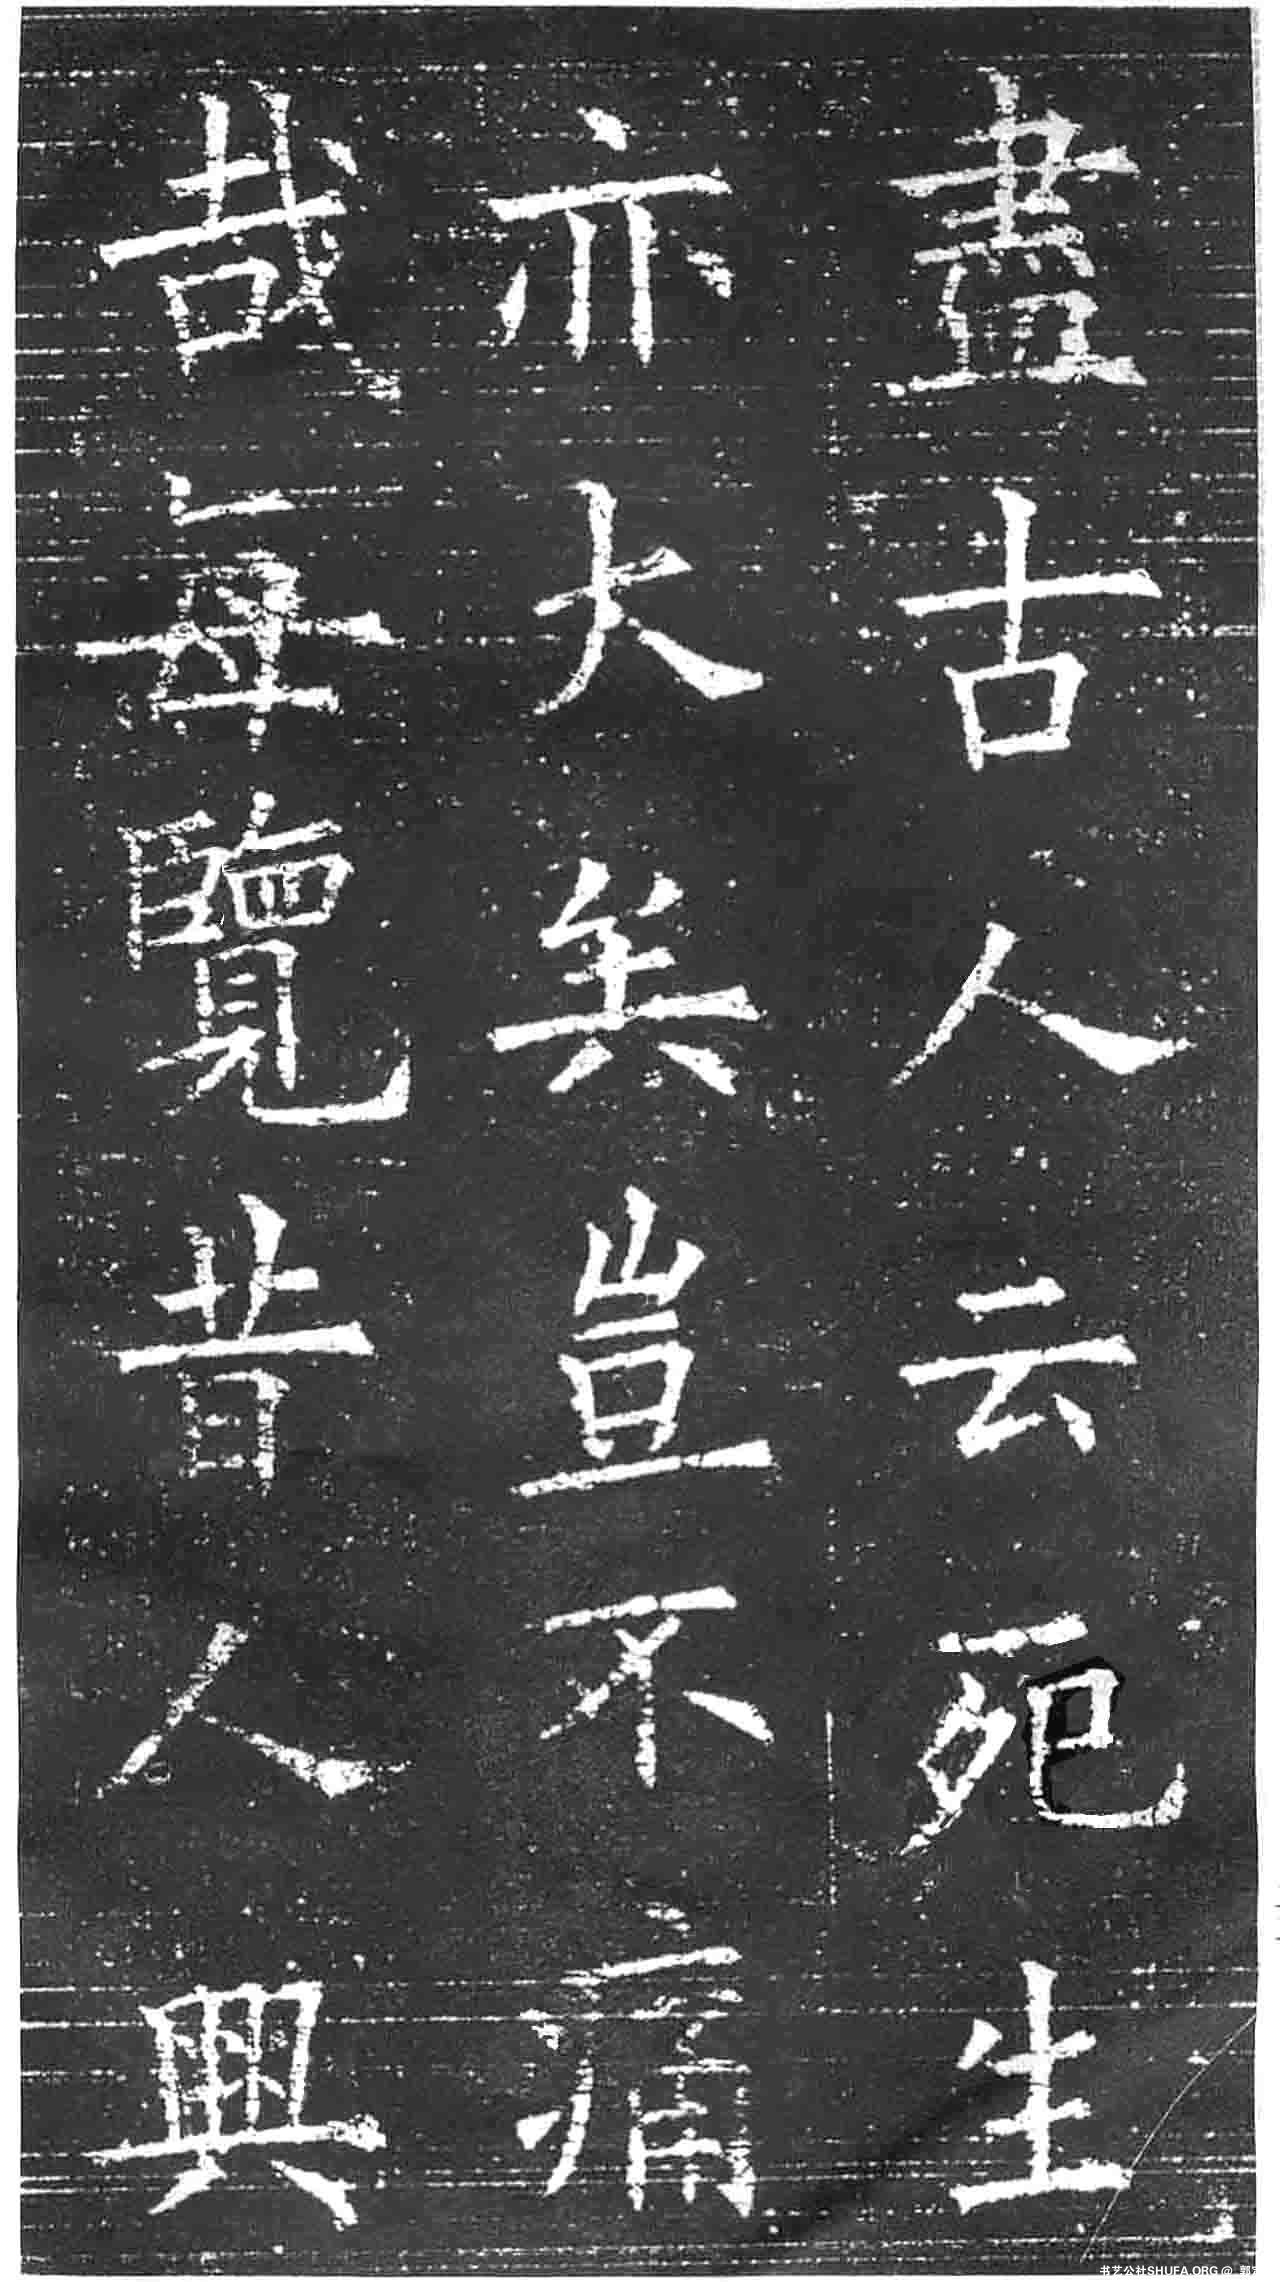 盡古人云死生
亦大矣豈不痛
哉每覽昔人興
书艺公社SHUFA.ORG @